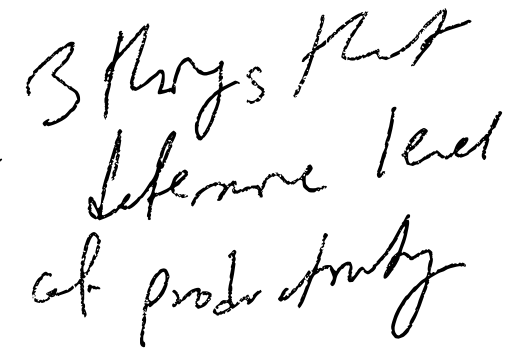 3 things that
determine level
of productivity